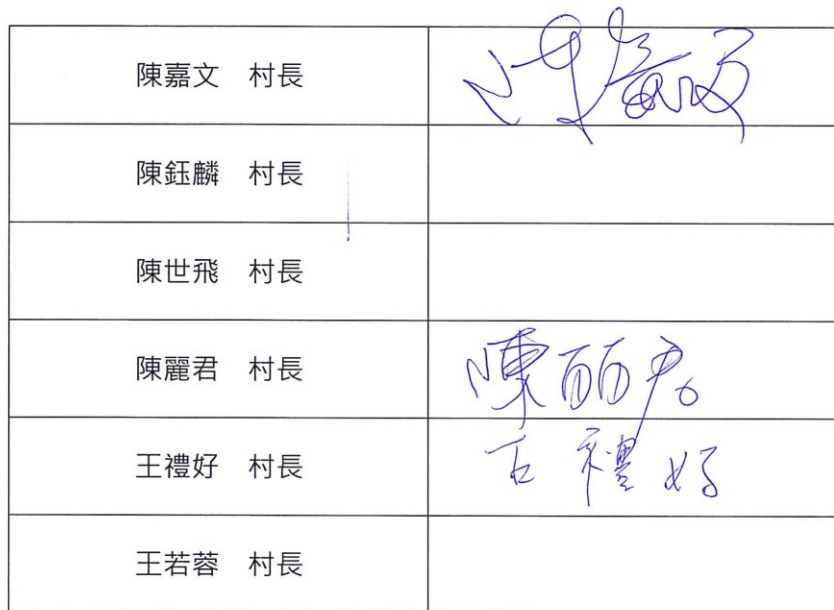 陳嘉文 村長 陳嘉文
陳鈺麟 村長
陳世飛 村長
陳麗君 村長 陳丽君
王禮好 村長 王禮好
王若蓉 村長